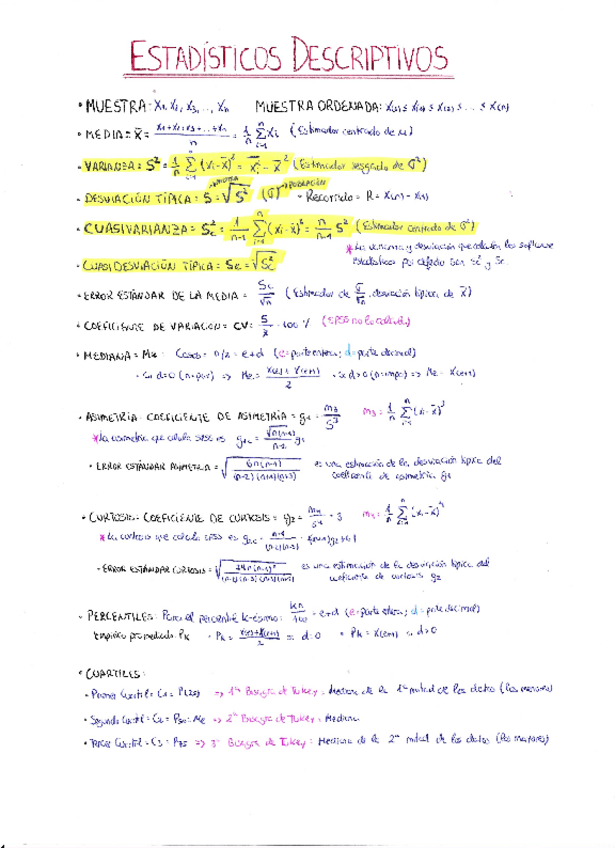 ESTADÍSTICOS DESCRIPTIVOS
• MUESTRA: X₁, X₂, X₃, ..., Xₙ MUESTRA ORDENADA: X(1) ≤ X(2) ≤ X(3) ≤ ... ≤ X(n)
• MEDIA = X̄ = (X₁+X₂+X₃+...+Xₙ)/n = 1/n Σ Xi (Estimador centrado de μ)
• VARIANZA = S² = 1/n Σ (xi - x̄)² = (Estimador sesgado de σ²)
• DESVIACIÓN TÍPICA = S = √S² (σ) → POBLACIÓN • Recorrido = R = X(n) - X(1)
• CUASIVARIANZA = Sc² = 1/(n-1) Σ (xi - x̄)² = n/(n-1) S² (Estimador centrado de σ²)
* La varianza y desviación que calculan los softwares
estadísticos por defecto son Sc² y Sc
• CUASIDESVIACIÓN TÍPICA = Sc = √Sc²
• ERROR ESTÁNDAR DE LA MEDIA = Sc/√n (Estimador de σ/√n, desviación típica de X̄)
• COEFICIENTE DE VARIACIÓN = CV = S/x̄ · 100 % (SPSS no lo calcula)
• MEDIANA = Me: Casos = n/2 = e+d (e = parte entera; d = parte decimal)
• Si d=0 (n = par) => Me = /2 • Si d>0 (n = impar) => Me = X(e+1)
• ASIMETRÍA: COEFICIENTE DE ASIMETRÍA = g₁ = m₃/S³ m₃ = 1/n Σ (xi - x̄)³
* La asimetría que calcula SPSS es
• ERROR ESTÁNDAR ASIMETRÍA = √(6n(n-1)/((n-2)(n+1)(n+3))) es una estimación de la desviación típica del
coeficiente de asimetría g₁
• CURTOSIS: COEFICIENTE DE CURTOSIS = g₂ = m₄/S⁴ - 3 m₄ = 1/n Σ (xi - x̄)⁴
* La curtosis que calcula SPSS es
• ERROR ESTÁNDAR CURTOSIS = es una estimación de la desviación típica del
coeficiente de curtosis g₂
• PERCENTILES: Para el percentil k-ésimo: kn/100 = e+d (e = parte entera; d = parte decimal)
Empírico promediado Pk • Pk = (X(e)+X(e+1))/2 si d=0 • Pk = X(e+1) si d>0
• CUARTILES:
• Primer Cuartil = C₁ = P(25) => 1ª Bisagra de Tukey: Mediana de la 1ª mitad de los datos (los menores)
• Segundo Cuartil = C₂ = P50 = Me => 2ª Bisagra de Tukey: Mediana
• Tercer Cuartil = C₃ = P75 => 3ª Bisagra de Tukey: Mediana de la 2ª mitad de los datos (los mayores)